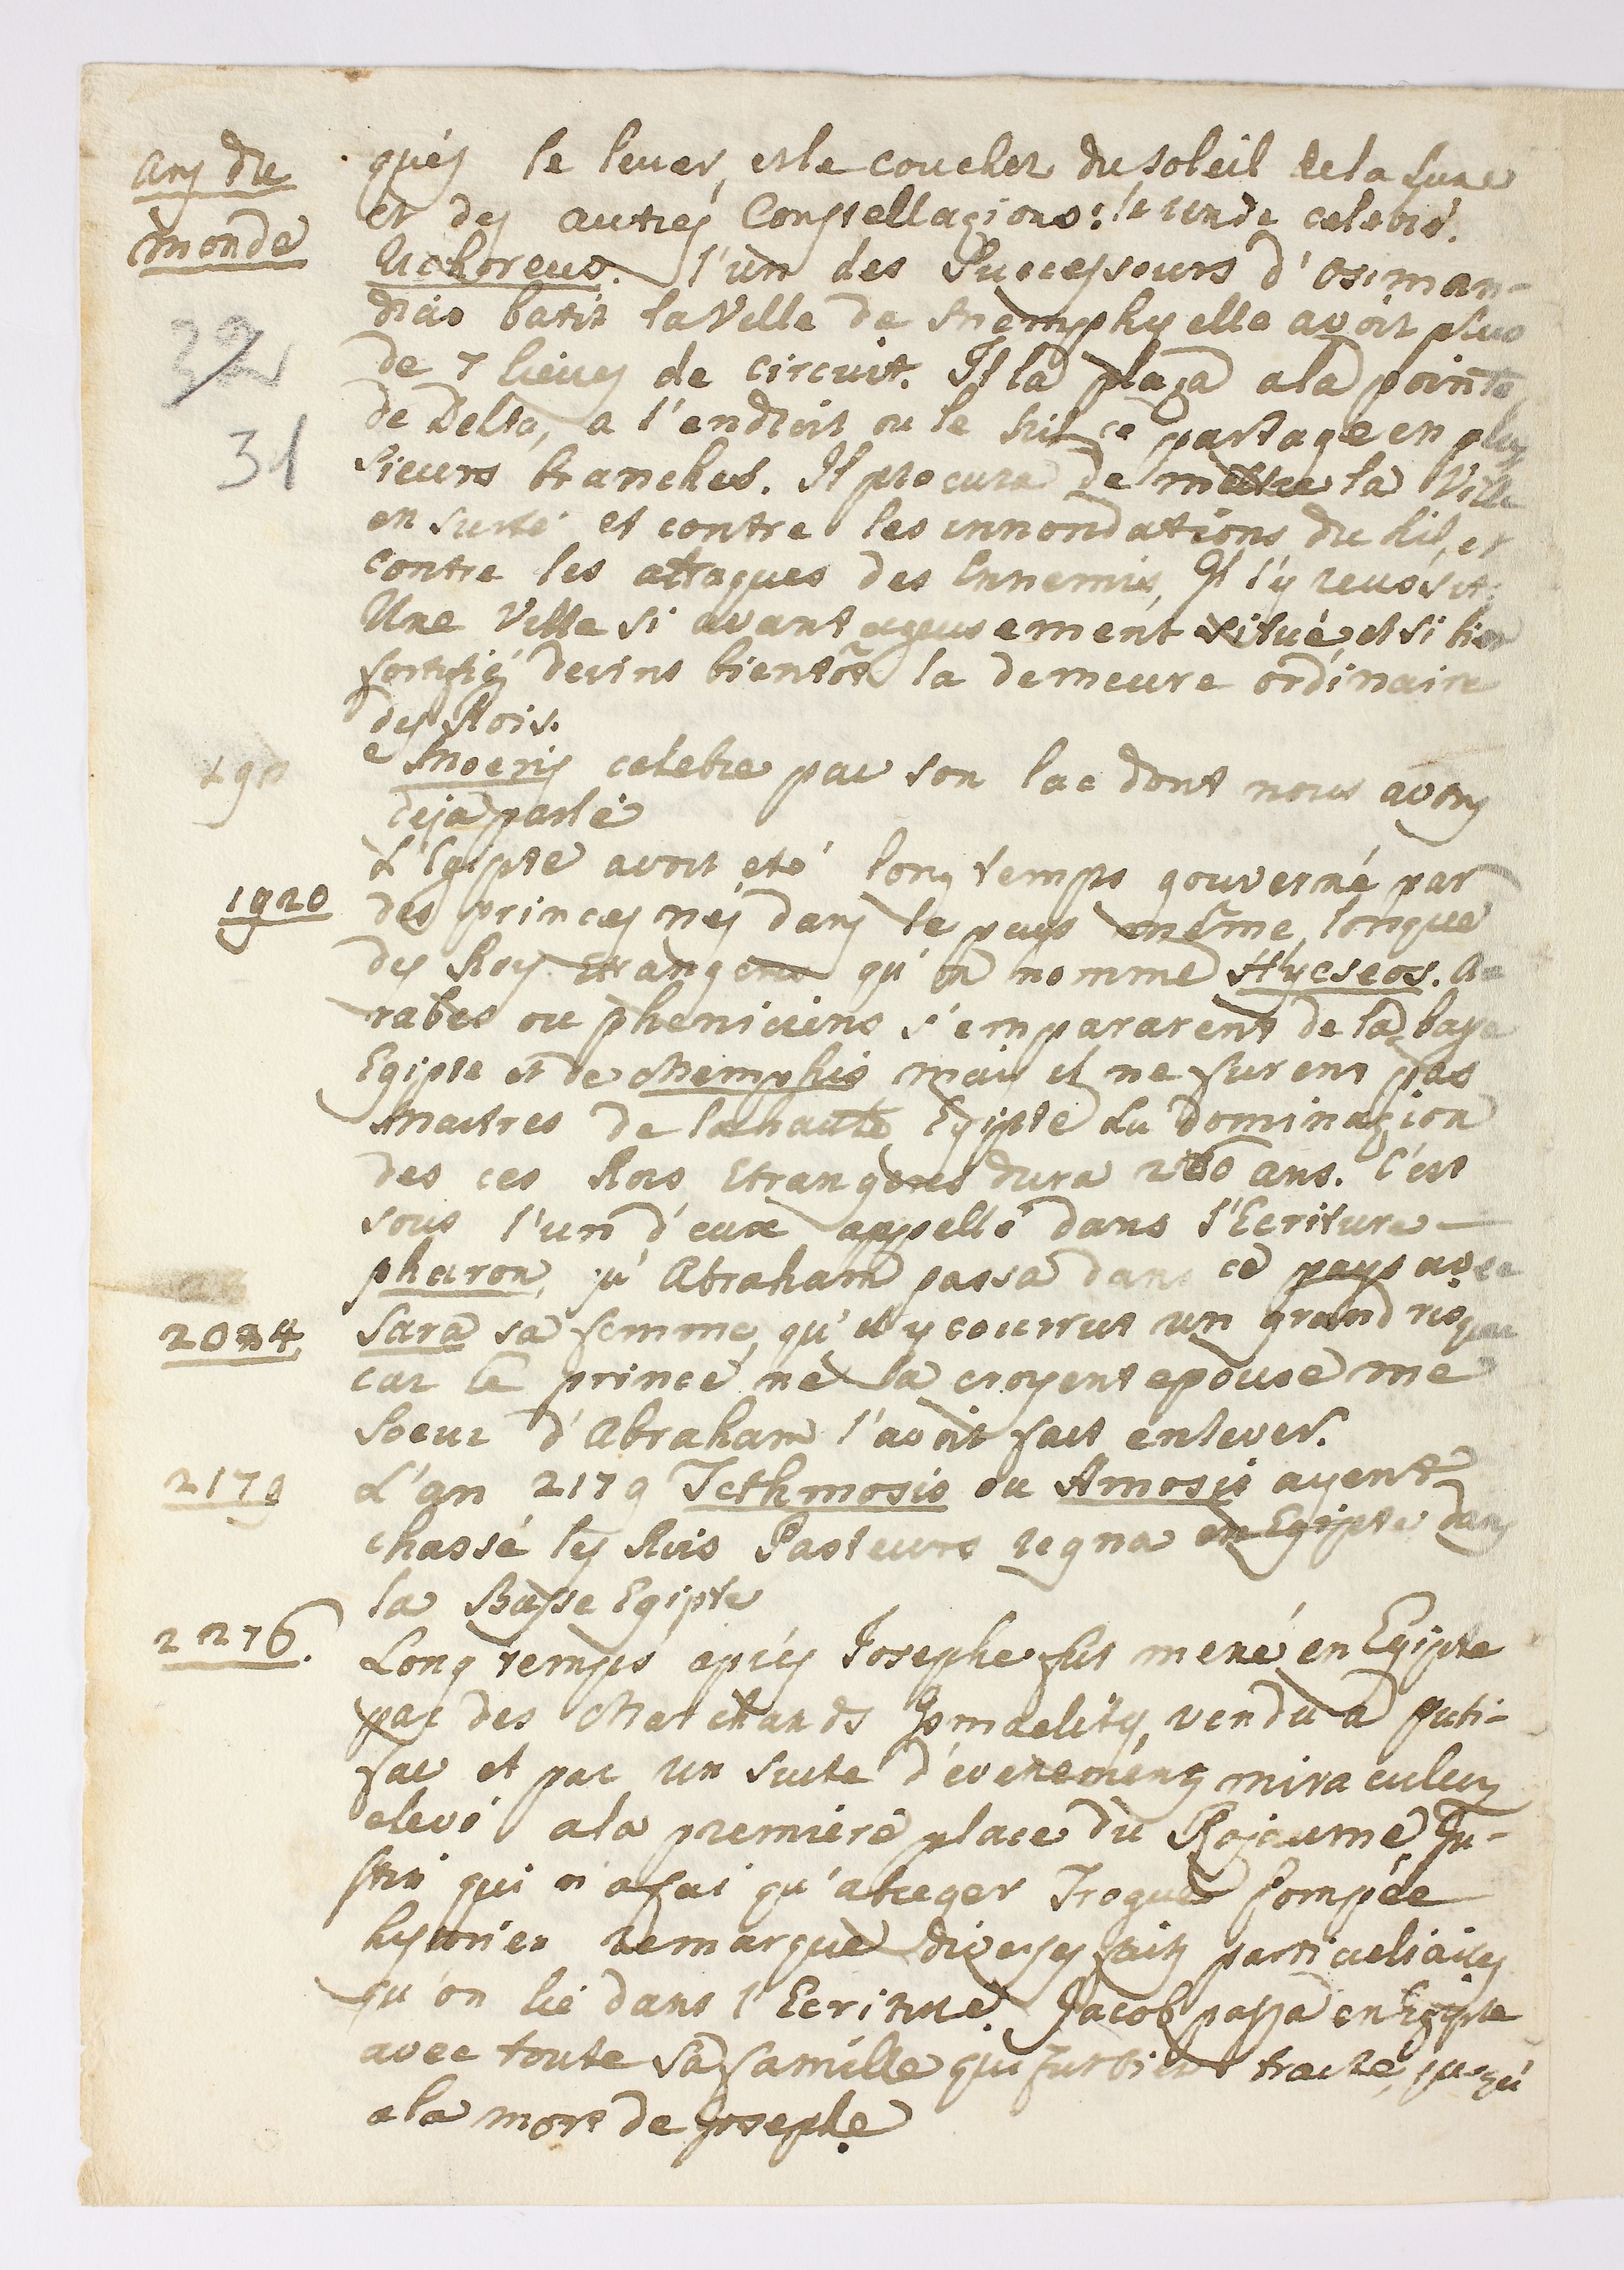 Ans du
monde
32
31
qués le lever, et le coucher du soleil de la lune
et des autres Constellazions: le rende celebre.
Uchoreus. l'un des Successeurs d'Osiman-
dias batit la Ville de Memphys elle avoit plus
de 7 lieues de circuit. Il la plaza a la pointe
de Delta, a l'endroit ou le Nil ce partage en plus
sieurs branches. Il procura de mettre la Ville
en sureté et contre les innondations du Nil, et
contre les attaques des Ennemis, Il l'y reussit.
Une Ville si avantageusement situé, et si bien
fortifié devins bientôt la demeure ordinaire
des Rois.
Moeris celebre par son lac dont nous avons
deja parlé
L'Egipte avoit eté long temps gouverné par
1920
des princes nés dans le pays même, lorsque
des Roys Etrangers qu'on nomme Hycseos. A-
rabes ou pheniciens s'empararent de la basse
Egipte et de Memphis mais il ne furent pas
Maitres de la haute Egipte La Dominazion
des ces Rois Etrangers dura 260 ans. C'est
sous l'un d'eux appellé dans l'Ecriture
pharon, qu'Abraham passa dans ce pays avec
2084
Sara sa femme, qu'il y courrut un grand risque
car le prince ne la croyent epouse me
Soeur d'Abraham l'avoit fait enlever.
2179
L'an 2179 Tethmosis ou Amosis ayent
chassé les Rois Pasteurs regna en Egipte dans
la Basse Egipte
2276.
Long temps aprés Josephe fut mené en Egipte
par des Marchands Ismaelitys, vendu a Puti-
far et par un suite d'evenements miraculeux
elevé a la premiere place du Rojaume, Ju-
stin qui n'a fai qu'abreger Trogue Pompée
hystorien remarque diverses faits particuliaires
qu'on lie dans l'Ecriture. Jacob passa en Egipte
avec toute sa famille qui fut bien traité, jusqu'
a la mort de Josephe